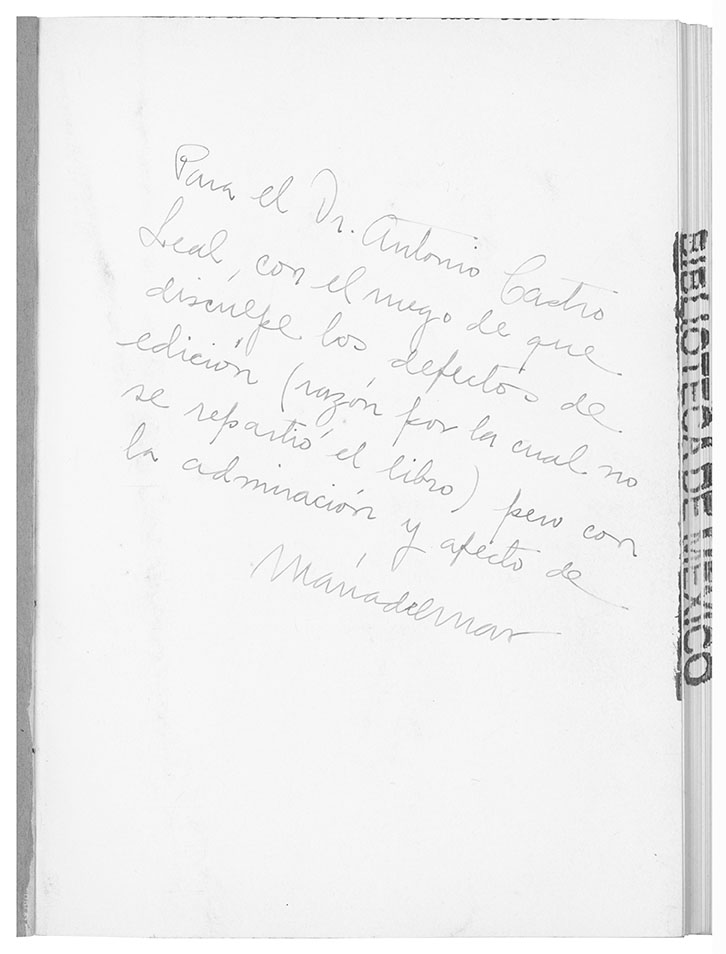 Para el Dr. Antonio Castro
Leal, con el ruego de que
disculpe los defectos de
edición (razón por la cual no
se repartió el libro) pero con
la admiración y afecto de
Maríadelmar
BIBLIOTECA DE MEXICO
BIBLIOTECA DE MEXICO